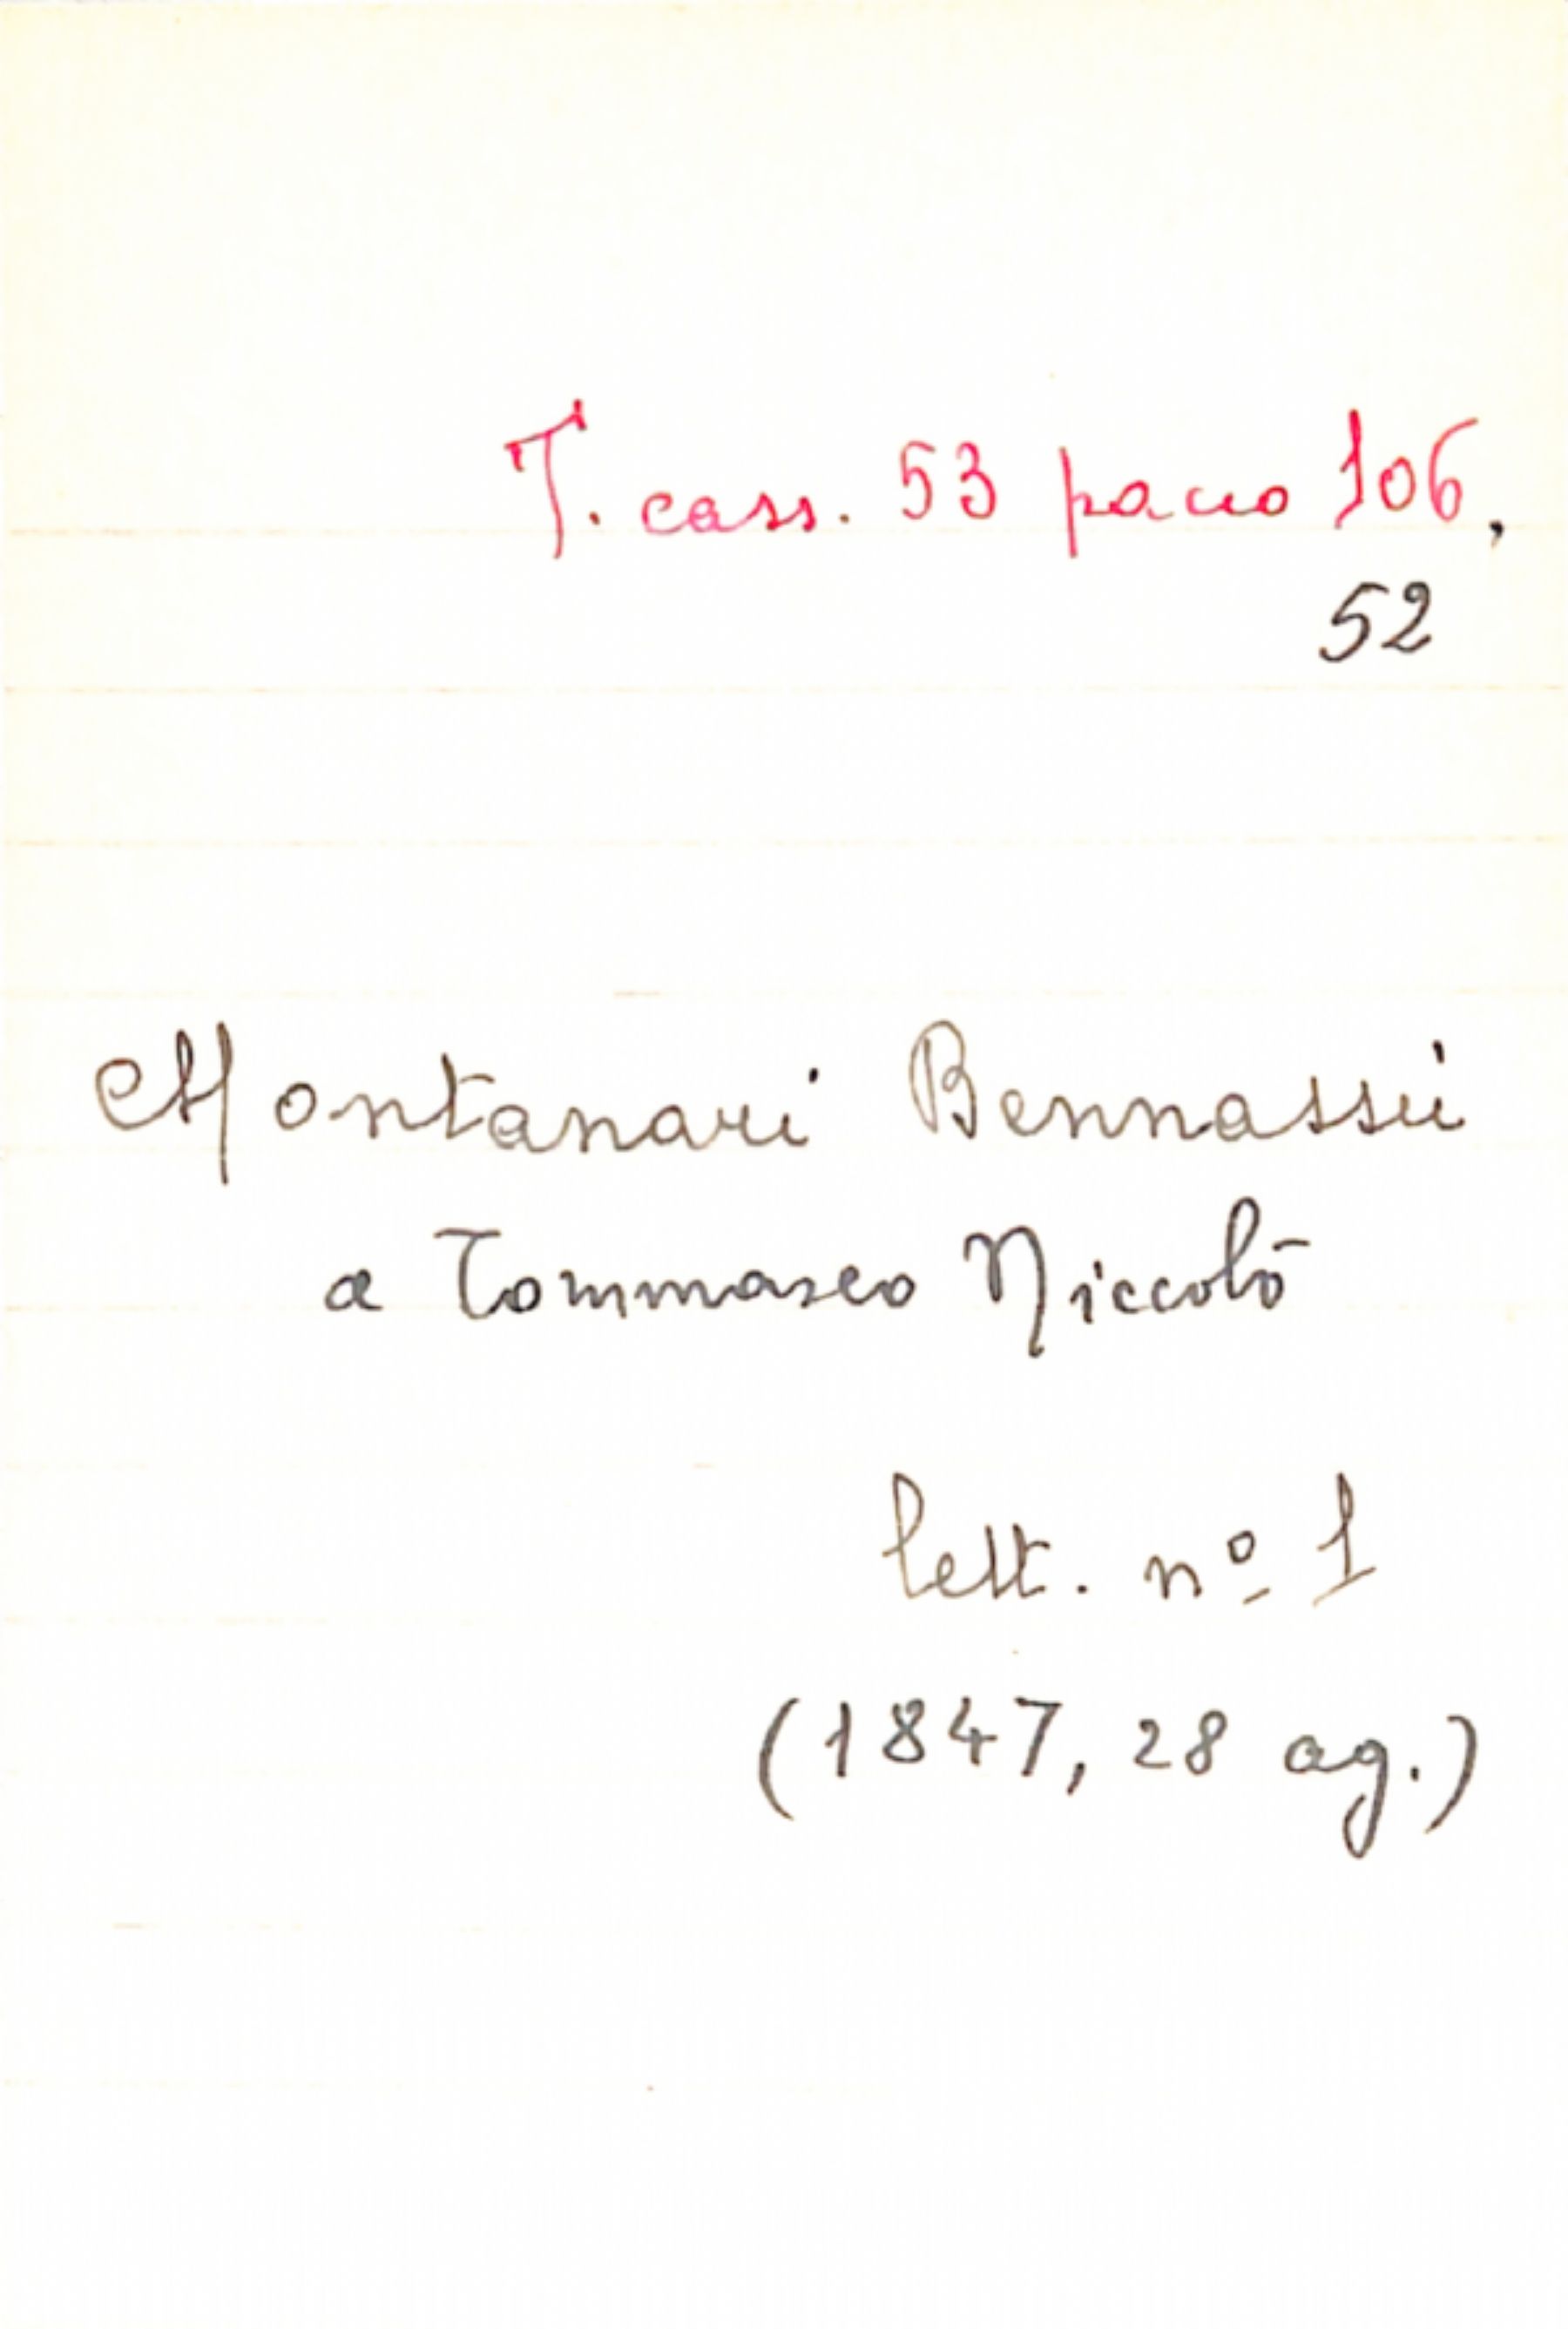 T. cass. 53 pacco 106,
52
Montanari Bennassù
a Tommaseo Niccolò
lett. nº 1
(1847, 28 ag.)